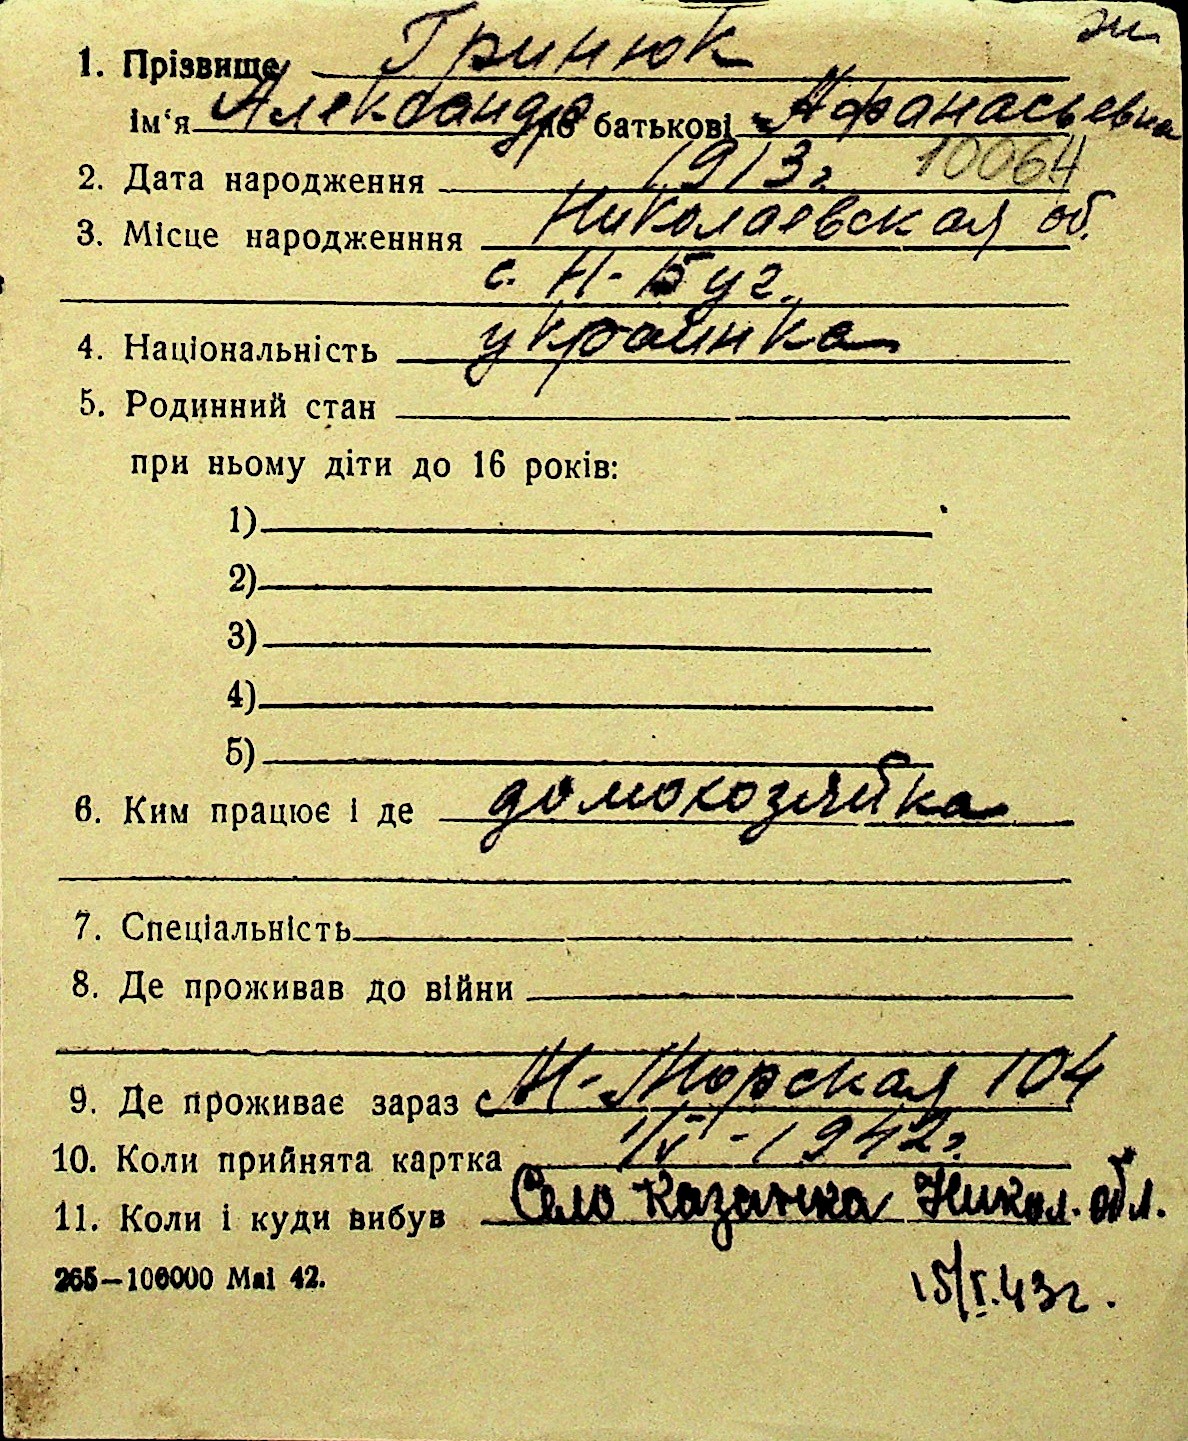 1. Прізвище Гринюк
ім'я Александра по батькові Афанасьевна
2. Дата народження 1913 г 10064
3. Місце народженння Николаевская об.
с. Н-Буг.
4. Національність украинка
5. Родинний стан
при ньому діти до 16 років:
1)
2)
3)
4)
5)
6. Ким працює і де домохозяйка
7. Спеціальність
8. Де проживав до війни
9. Де проживає зараз М-Морская 104
10. Коли прийнята картка 1/V-1942 г.
11. Коли і куди вибув Село Казанка Никол. обл.
265—100000 Маі 42. 15/I.43 г.